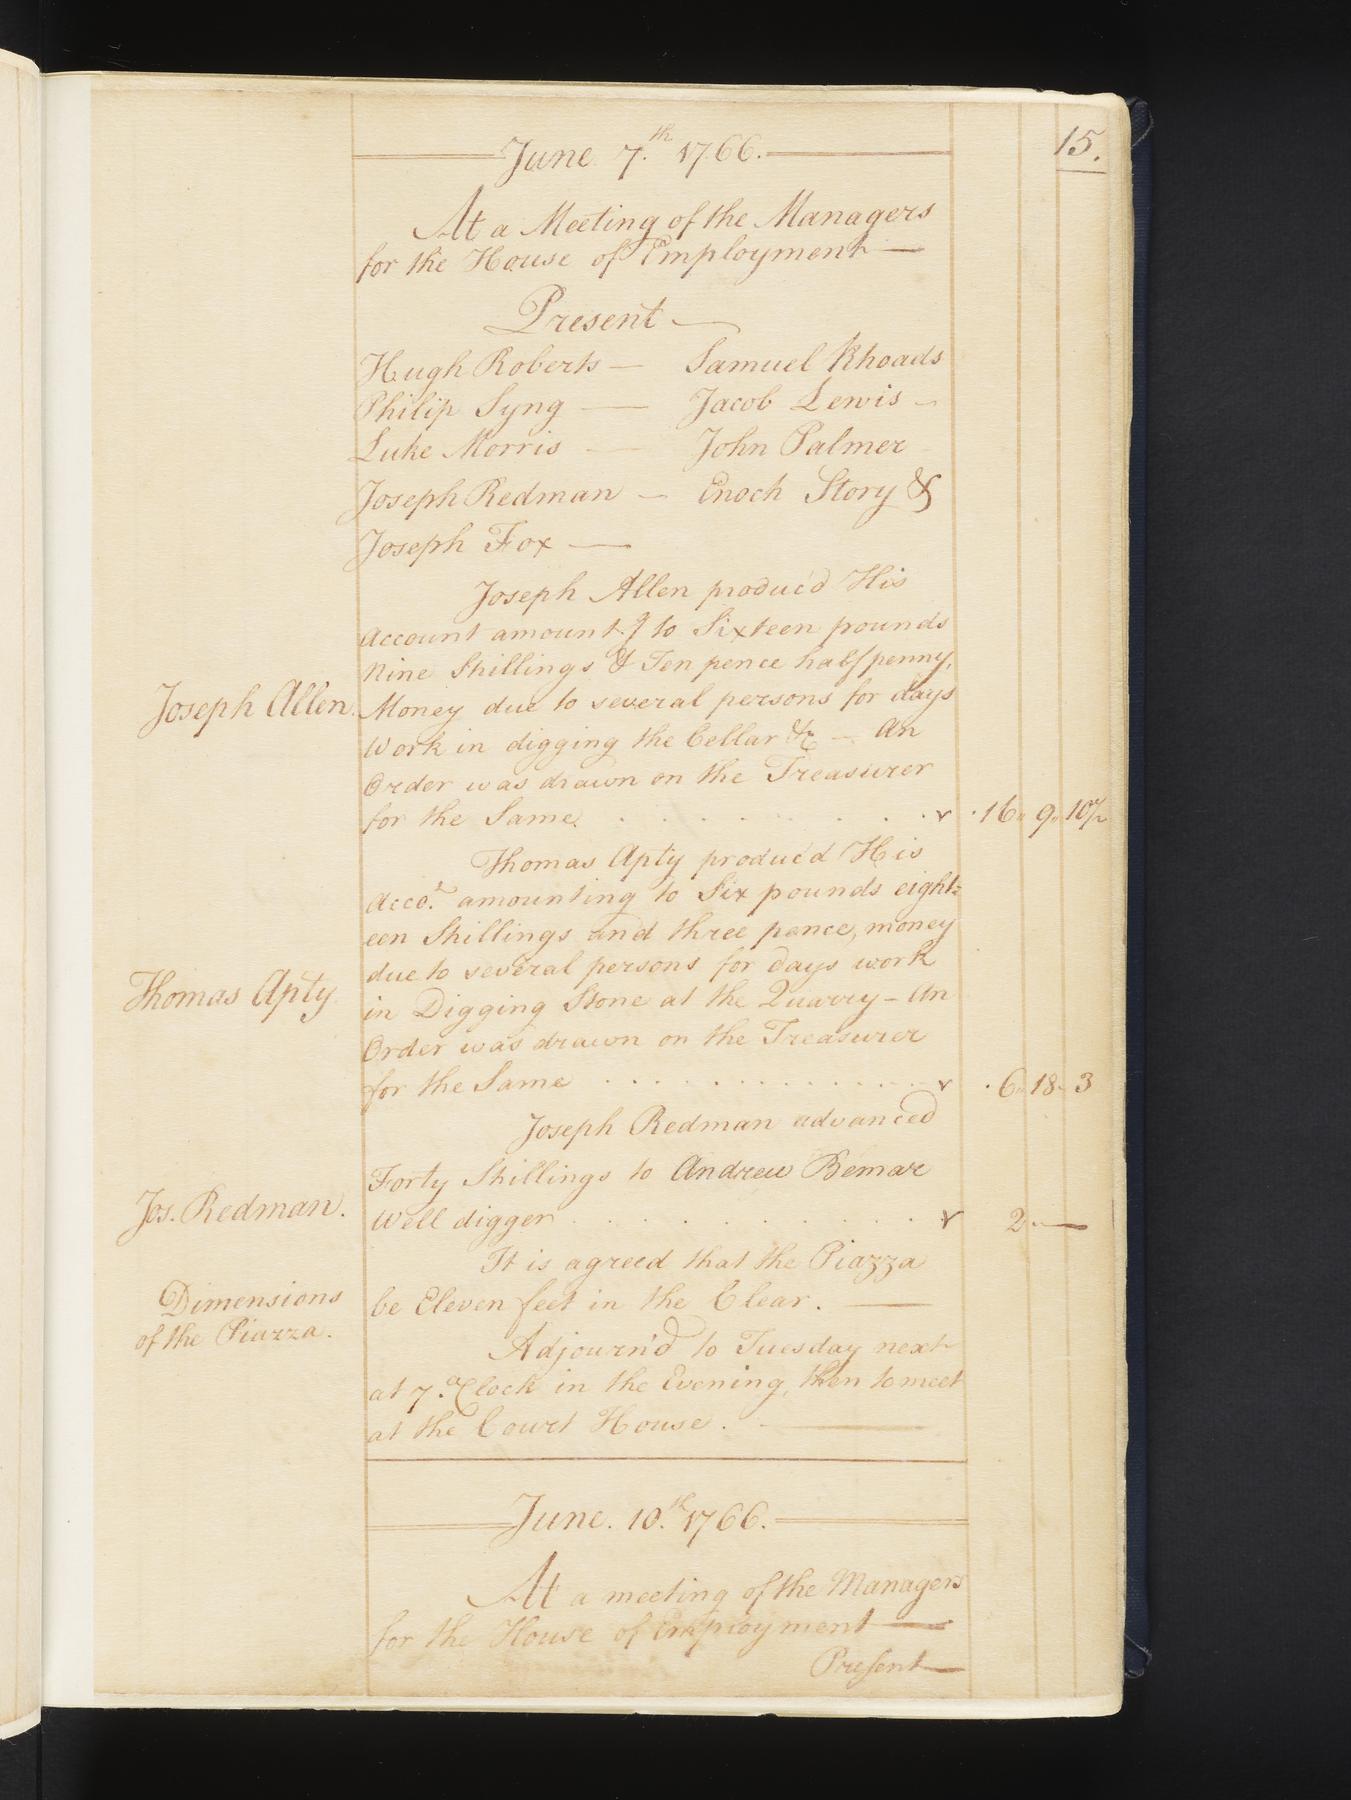 15.
June 7.th 1766.
At a Meeting of the Managers
for the House of Employment —
Present —
Hugh Roberts — Samuel Rhoads
Philip Syng — Jacob Lewis —
Luke Morris — John Palmer
Joseph Redman — Enoch Story &
Joseph Fox —
Joseph Allen produc'd His
Account amount.g to Sixteen pounds
Nine Shillings & Ten pence half penny,
Joseph Allen. Money due to several persons for days
Work in digging the Cellar &c — An
Order was drawn on the Treasurer
for the Same. . . . . . . . . . 16 " 9 " 10½
Thomas Apty produc'd His
Acco.t amounting to Six pounds eight=
een Shillings and three pence, money
due to several persons for days work
Thomas Apty in Digging Stone at the Quarry – An
Order was drawn on the Treasurer
for the Same . . . . . . . . . . 6 " 18 " 3
Joseph Redman advanced
Forty Shillings to Andrew Bemar
Jos. Redman. Well digger . . . . . . . . . . 2 " —
It is agreed that the Piazza
Dimensions be Eleven feet in the Clear. —
of the Piazza. Adjourn'd to Tuesday next
at 7. oClock in the Evening, then to meet
at the Court House. —
June. 10.th 1766.
At a meeting of the Managers
for the House of Employment —
Present —